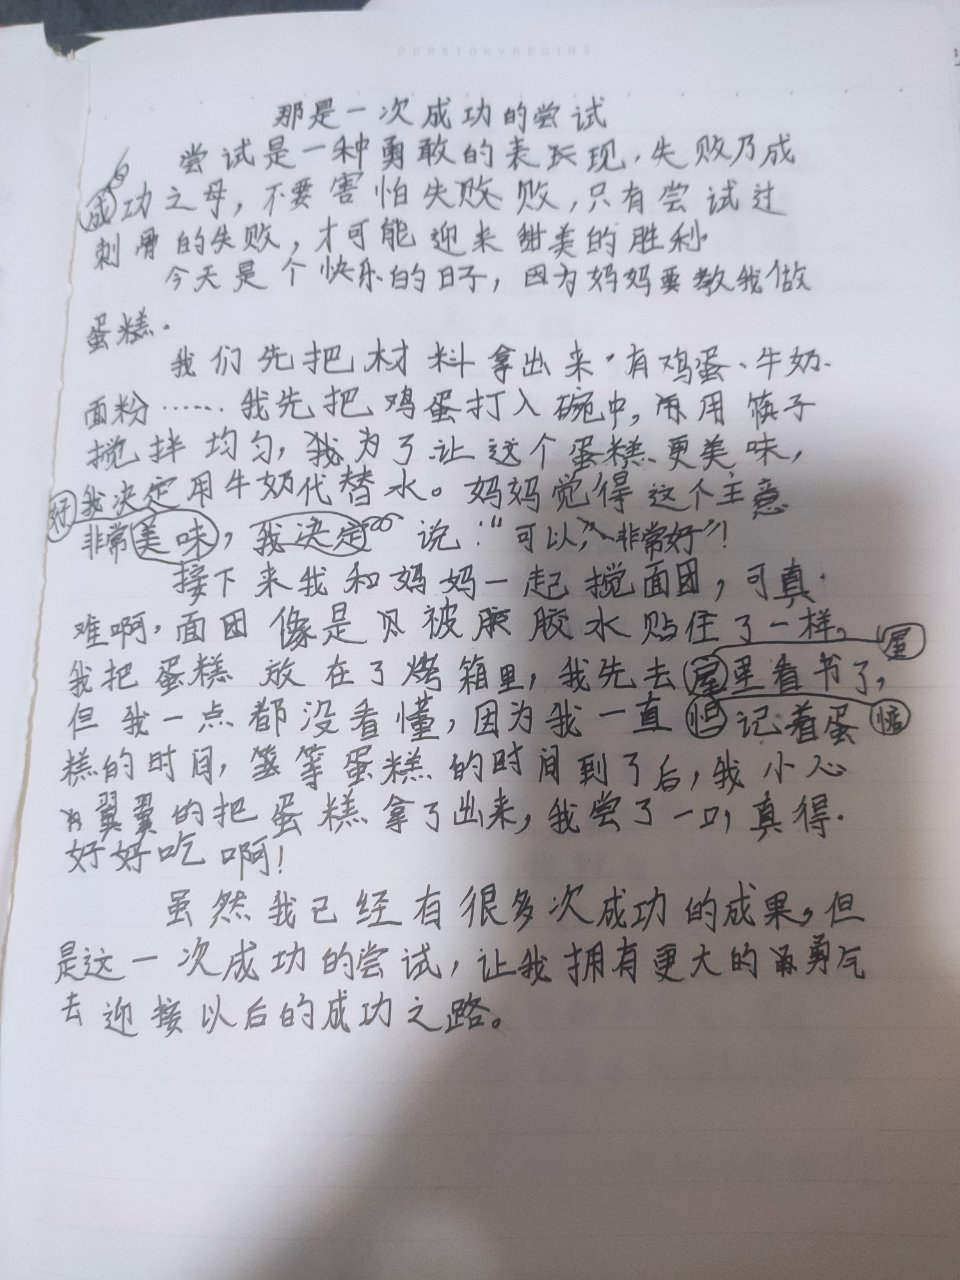 OURSTORYBEGINS
那是一次成功的尝试
尝试是一种勇敢的表现,失败乃成
成功之母,不要害怕失败败,只有尝试过
刺骨的失败,才可能迎来甜美的胜利.
今天是个快乐的日子,因为妈妈要教我做
蛋糕.
我们先把材料拿出来,有鸡蛋、牛奶、
面粉……我先把鸡蛋打入碗中,用筷子
搅拌均匀,我为了让这个蛋糕更美味,
我决定用牛奶代替水。妈妈觉得这个主意
好
非常美味,我决定说:“可以,非常好”!
接下来我和妈妈一起搅面团,可真
难啊,面团像是被胶水贴住了一样,
屋
我把蛋糕放在了烤箱里,我先去屋里看书了,
但我一点都没看懂,因为我一直记着蛋
糕的时间,等蛋糕的时间到了后,我小心
翼翼的把蛋糕拿了出来,我尝了一口,真得
好好吃啊!
虽然我已经有很多次成功的成果,但
是这一次成功的尝试,让我拥有更大的勇气
去迎接以后的成功之路。